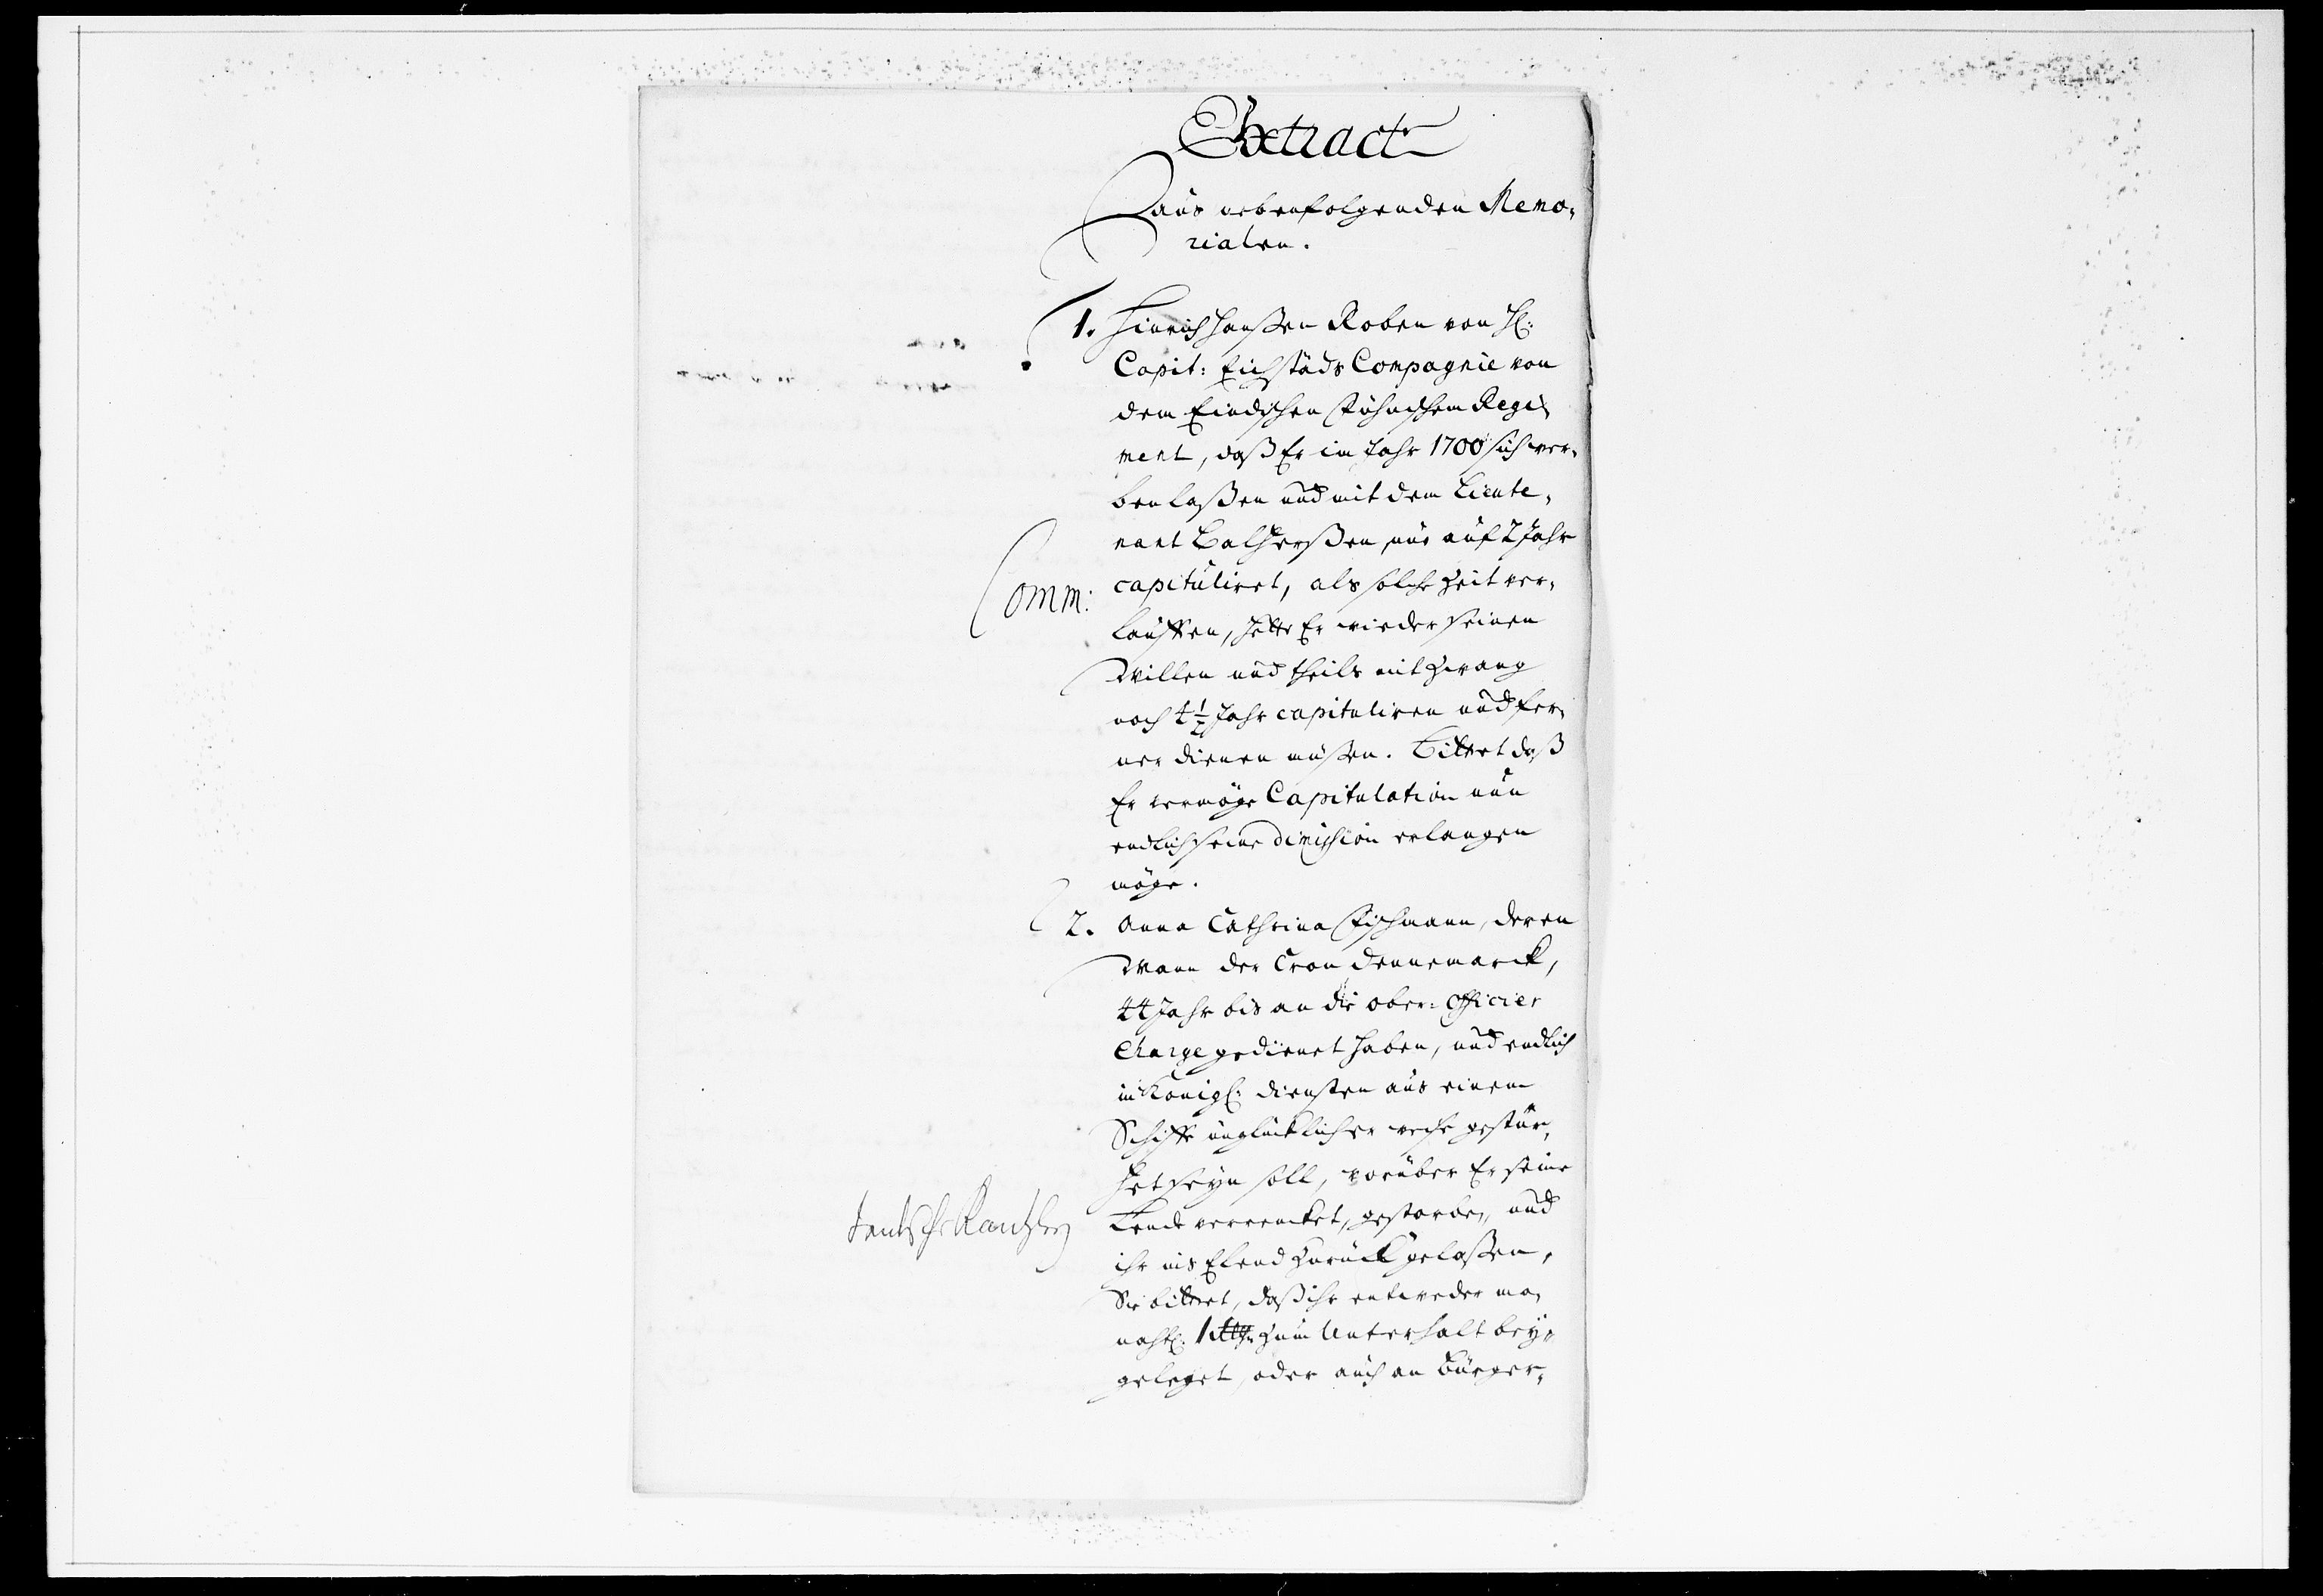 Extract
aus nebenfolgenden Memo-
rialen.
1. Hinrich Hanßen Roben von H:
Capit: Eichstäds Compagnie von
dem Fühnschen Regi-
ment, daß Er im Jahr 1700 sich wer-
ben laßen und mit dem Lieute-
nant nur auf 2 Jahr
Comm:
capituliret, als solche Zeit ver-
lauffen, hette Er wieder seinen
Willen und theils mit Zwang
noch 4 1/2 Jahr capituliren und fer-
ner dienen müßen. Bittet daß
Er vermöge Capitulation nun
endlich seine dimission erlangen
möge.
2. Anna Cathrina Fischmann, deren
Mann der Cron Dennemarck,
44 Jahr bis an die ober-Officier
Charge gedienet haben, und endlich
in Königl: diensten aus einem
Schiffe unglücklicher weise gestür-
tzet seyn soll, worüber Er seine
Lende verrencket, gestorben, und
teutsche Kantzley
ihr ins Elend zurück gelaßen,
Sie bittet, daß ihr entweder mo-
nahtl: 1 Rthlr zum Unterhalt bey-
geleget, oder auch an Bürger-